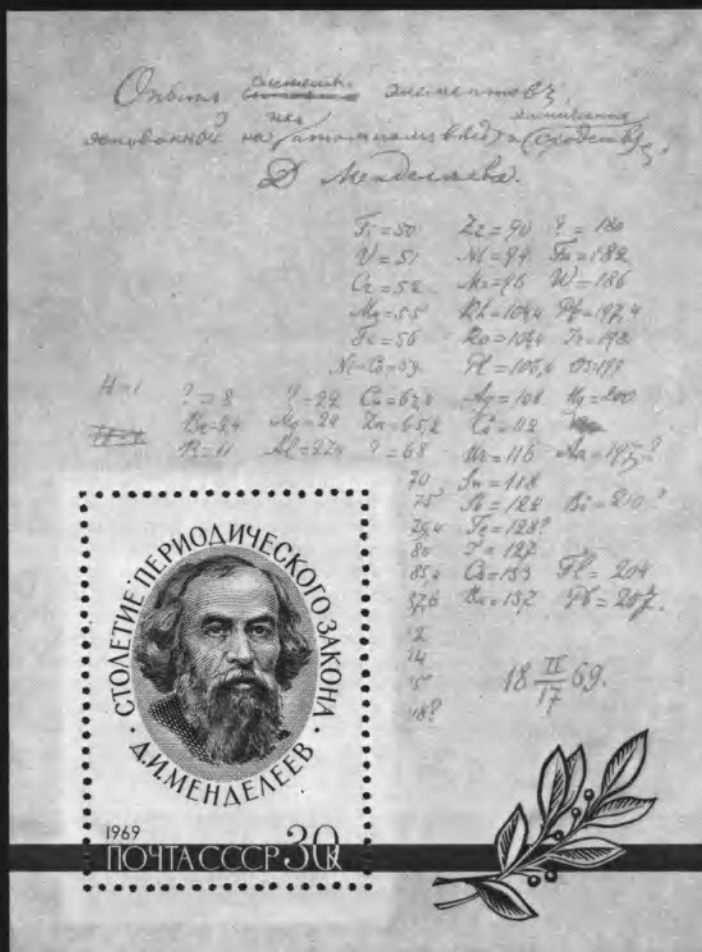 Опытъ системы элементовъ,
основанной на ихъ атомномъ вѣсѣ и химическомъ сходствѣ,
Д Менделѣева.
Ti=50 Zr=90 ?=180
V=51 Nb=94 Ta=182
Cr=52 Mo=96 W=186
Mn=55 Rh=104,4 Pt=197,4
Fe=56 Ru=104,4 Ir=198
Ni=Co=59 Pl=106,6 Os=199
H=1 ?=8 ?=22 Cu=63,4 Ag=108 Hg=200
Be=9,4 Mg=24 Zn=65,2 Cd=112
B=11 Al=27,4 ?=68 Ur=116 Au=197?
70 Sn=118
75 Sb=122 Bi=210?
79,4 Te=128?
80 I=127
85,4 Cs=133 Tl=204
87,6 Ba=137 Pb=207.
92
94
95
118?
18 II/17 69.
СТОЛЕТИЕ ПЕРИОДИЧЕСКОГО ЗАКОНА
· Д.И.МЕНДЕЛЕЕВ ·
1969
ПОЧТА СССР 30К